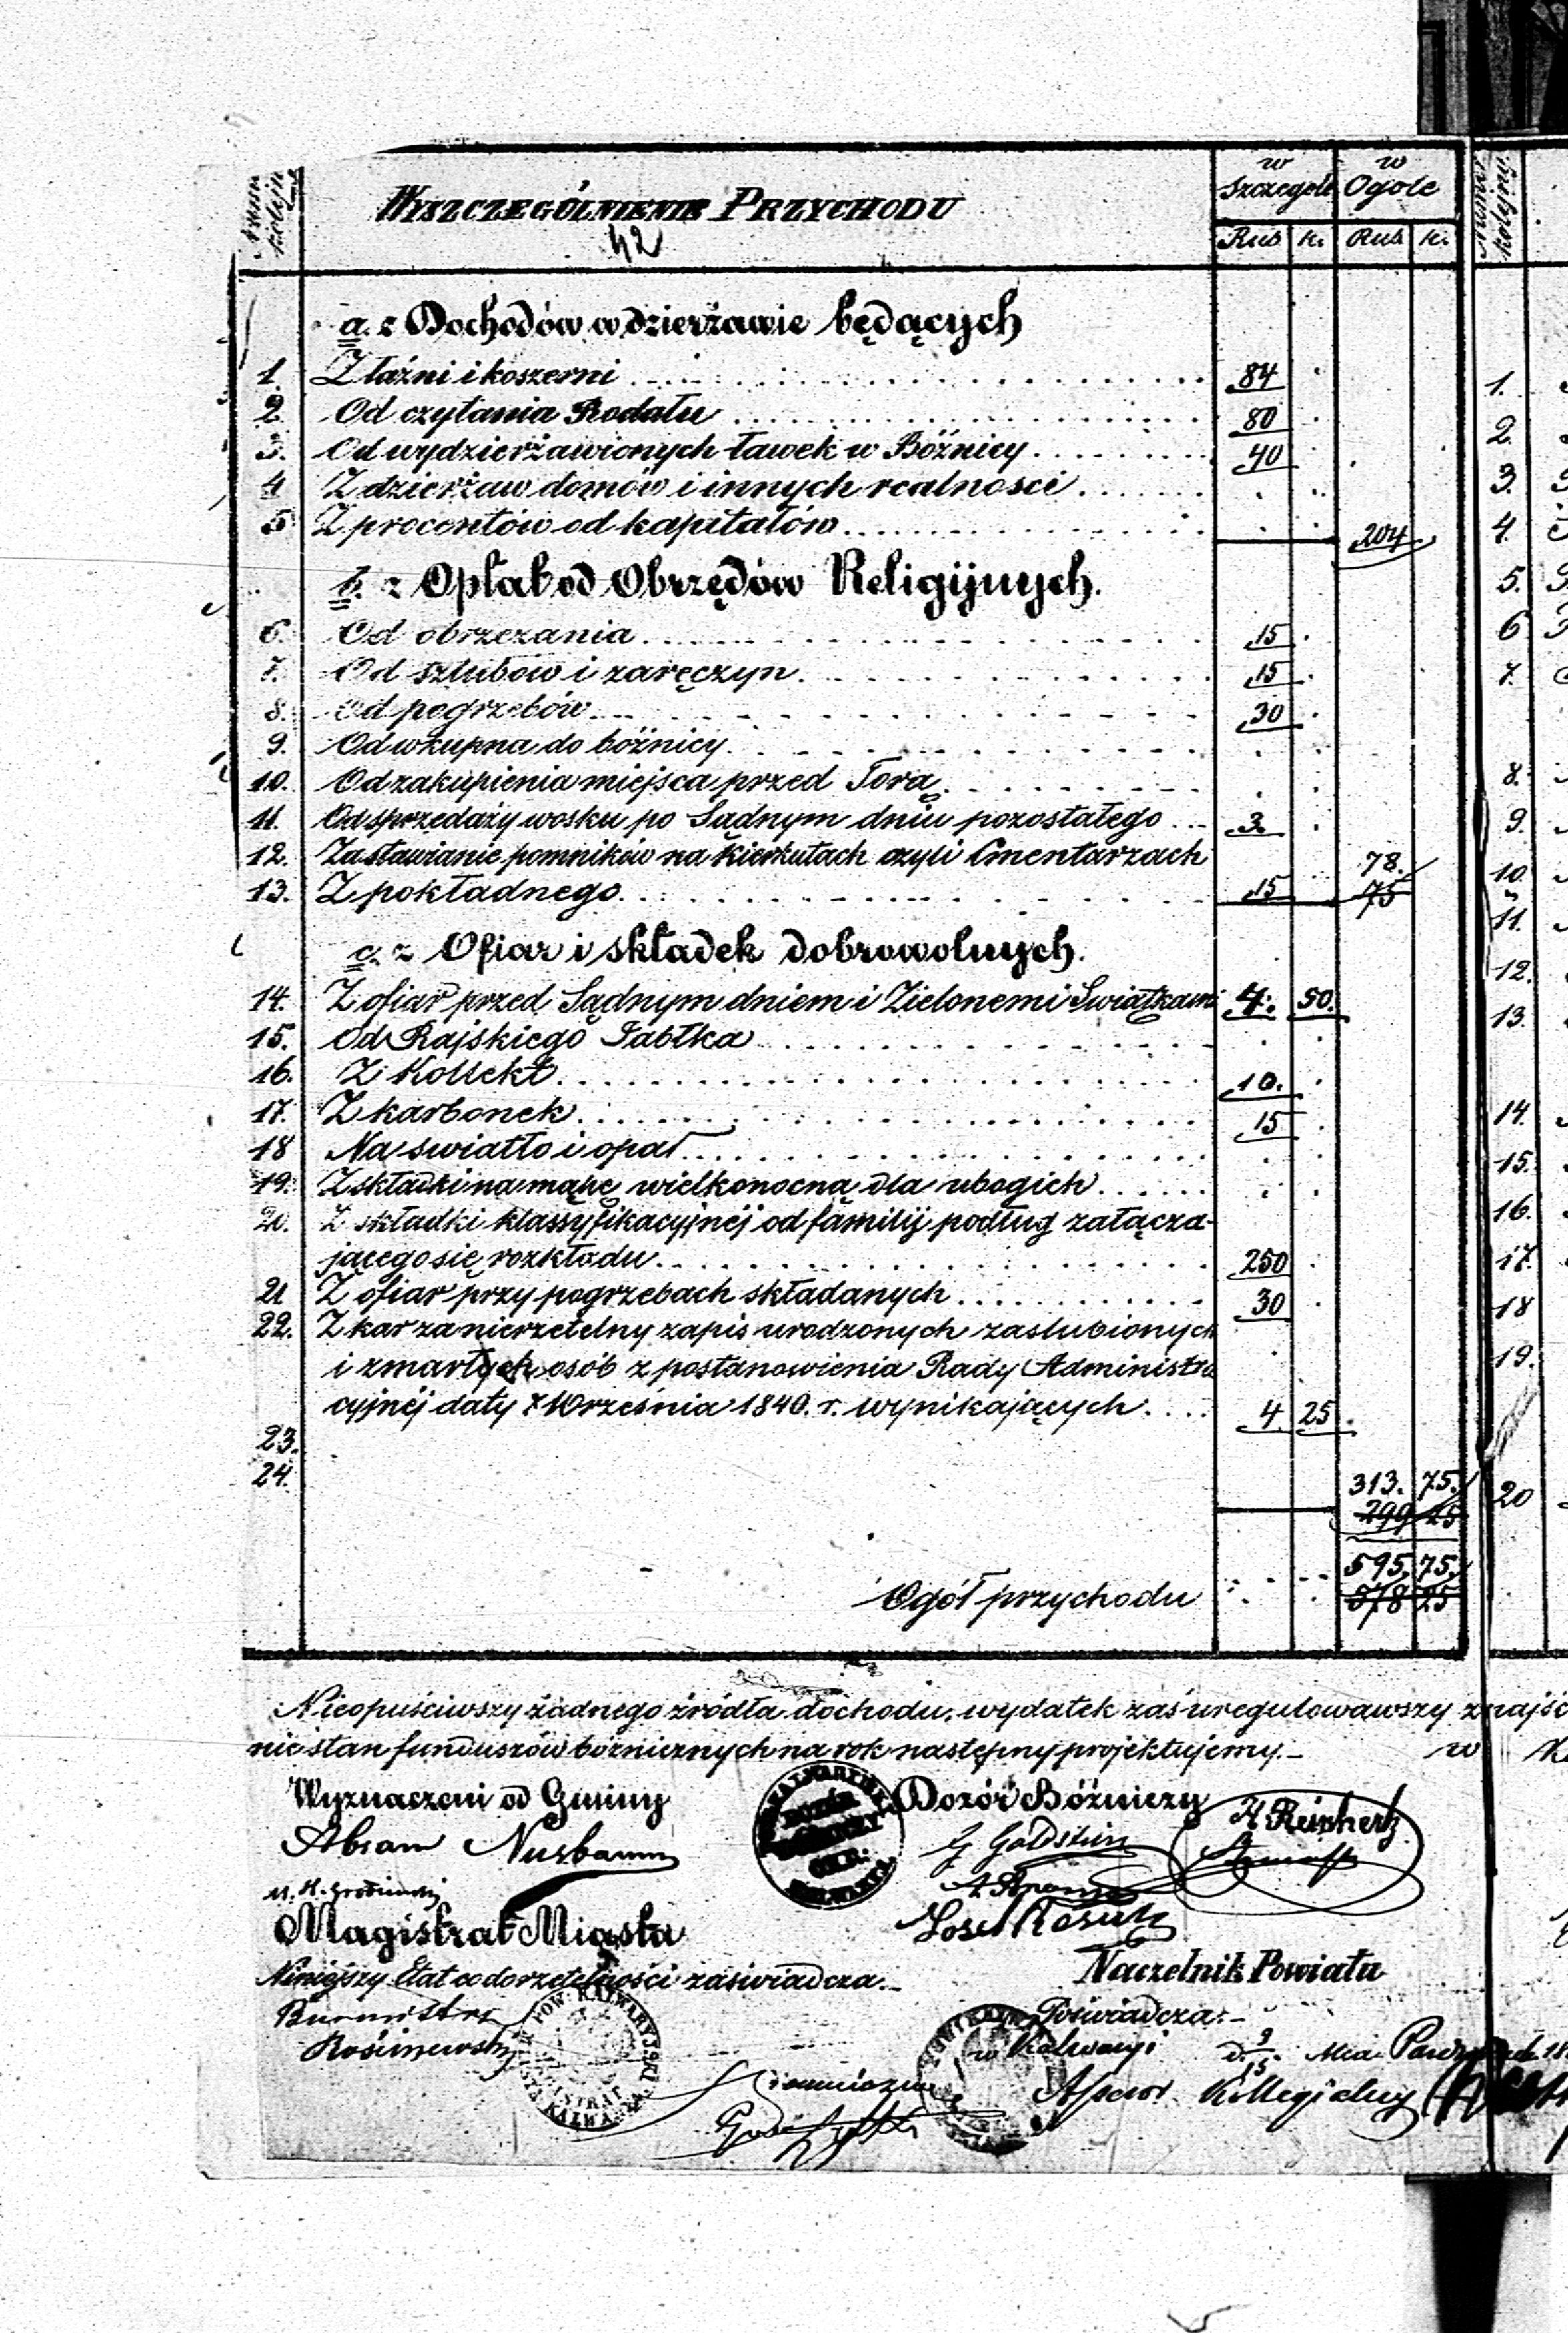 Numer kolejny
WYSZCZEGÓLNIENIE PRZYCHODU
w Szczegole
w Ogóle
42
Rub k. Rub k.
a. z Dochodów w dzierżawie będących
1. Z łaźni i koszerni 84
2. Od czytania Rodału 80
3. Od wydzierżawionych ławek w Bóżnicy 40
4 Z dzierżaw domów i innych realności
5 Z procentów od kapitałów 204
b. z Opłat od Obrzędów Religijnych.
6. Od obrzezania 15
7. Od szlubów i zaręczyn 15
8. Od pogrzebów 30
9. Od wkupna do bóżnicy
10. Od zakupienia miejsca przed Torą
11. Od sprzedaży wosku po Sądnym dniu pozostałego 3.
12. Za stawianie pomników na Kierkutach czyli Cmentarzach
78.
13. Z pokładnego 15 75
c. z Ofiar i składek dobrowolnych.
14. Z ofiar przed Sądnym dniem i Zielonemi Swiątkami 4. 50.
15. Od Rajskiego Jabłka
16. Z Kollekt 10.
17. Z karbonek 15
18 Na swiatło i opał
19. Z składki na mąkę wielkonocną dla ubogich
20. Z składki klassyfikacyjnéj od familij podług załącza-
jącego się rozkładu 250
21 Z ofiar przy pogrzebach składanych 30
22. Z kar za nierzetelny zapis urodzonych zaslubionych
i zmarłych osób z postanowienia Rady Administra
cyjnéj daty 7 Września 1840. r. wynikających 4. 25.
23.
24.
313. 75.
299 25
595. 75.
Ogół przychodu 578 25
Nieopuściwszy żadnego źródła dochodu, wydatek zaś uregulowawszy znajść
nie stan funduszów bóżnicznych na rok następny projektujemy.
w
Wyznaczeni od Gminy
Dozór Bóżniczy
Abram Nusbaum
G Goldstein
Magistrat Miasta
Niniejszy Etat co do rzetelności zaświadcza.
Naczelnik Powiatu
Poświadcza.
Burmistrz
w Kalwaryi d. 9/15 Mca
Assesor Kollegialny
1.
2.
3.
4.
5.
6
7.
8.
9.
10.
11.
12.
13.
14.
15.
16.
17.
18
19.
20